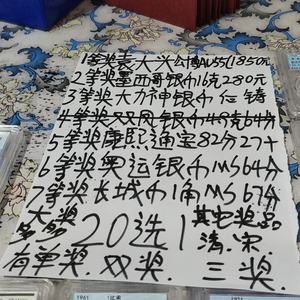 1等奖袁大头公博AU55(1850元
2等奖墨西哥银币16克280元
3等奖大力神银币仁铸
4等奖双凤银币48克64分
5等奖康熙通宝82分27十
6等奖奥运银币MS64分
7等奖长城币1角MS67分
大奖
多多
20选1
其它奖品
清.宋.
有单奖.双奖.三奖.
1961